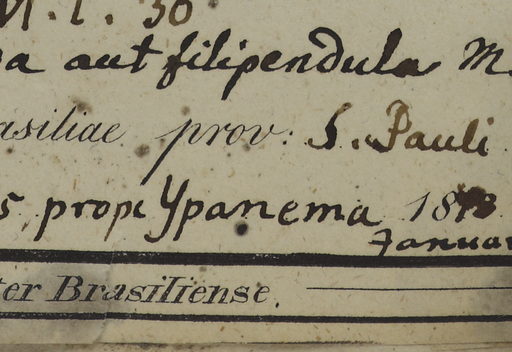 M. l. 30
a aut filipendula M.
asiliae prov: S. Pauli
s prope Ypanema 18
Januar
ter Brasiliense.